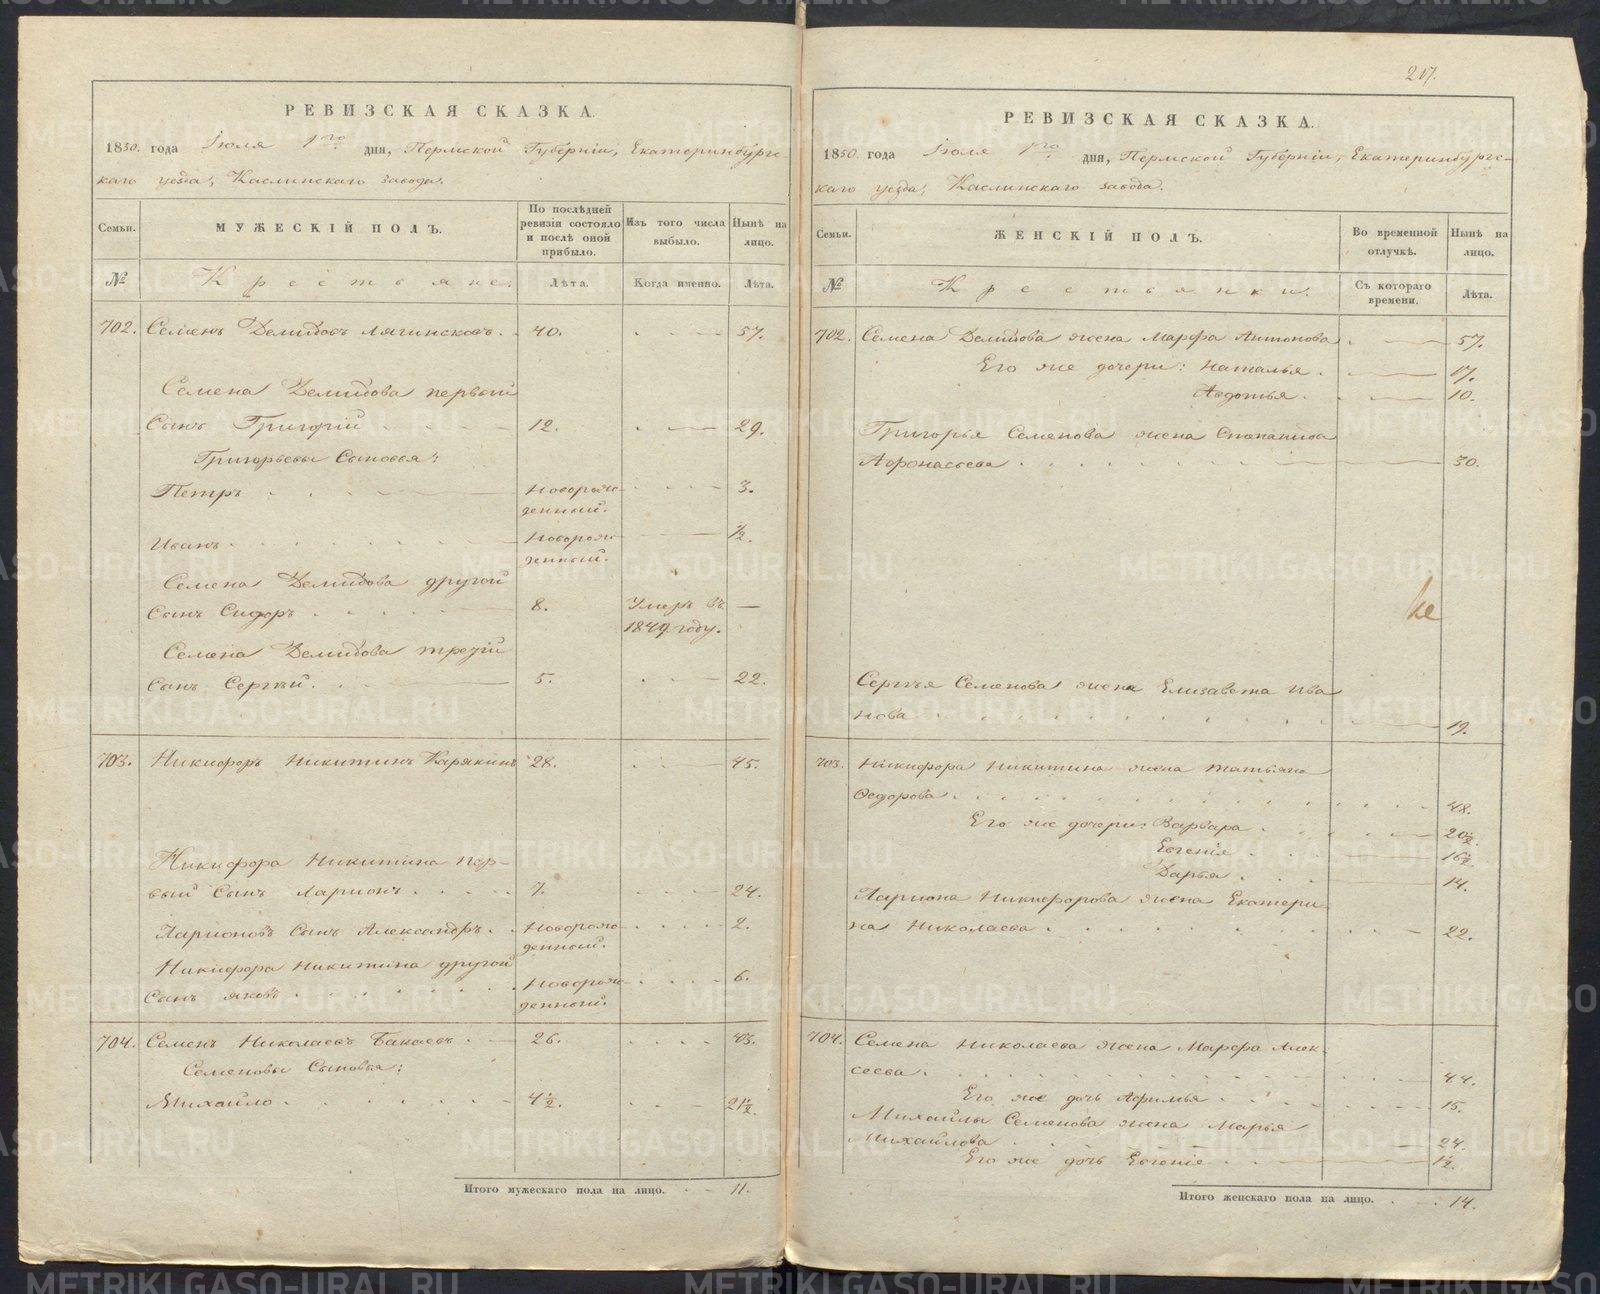 217.
РЕВИЗСКАЯ СКАЗКА.
1850. года Іюля 1го дня, Пермской Губерніи, Екатеринбургс-
каго уезда, Каслинскаго завода.
Семьи. МУЖЕСКІЙ ПОЛЪ. По послѣдней ревизіи состояло и послѣ оной прибыло. Изъ того числа выбыло. Нынѣ на лицо.
№ Крестьяне. Лѣта. Когда именно. Лѣта.
702. Семенъ Демидовъ Лягинсковъ. 40. 57.
Семена Демидова первый
Сынъ Григорій 12. 29.
Григорьевы Сыновья:
Петръ Новорож- 3.
денный.
Иванъ. Новорож- ½.
денный.
Семена Демидова другой
Сынъ Сидоръ 8. Умеръ въ —
1849 году.
Семена Демидова третій
Сынъ Сергѣй. 5. 22.
703. Никифоръ Никитинъ Карякинъ 28. 45.
Никифора Никитина пер-
вый Сынъ Ларионъ 7. 24.
Ларионовъ Сынъ Александръ. Новорож- 2.
денный.
Никифора Никитина другой
Сынъ Яковъ Новорож- 6.
денный.
704. Семенъ Николаевъ Бакаевъ 26. 43.
Семеновы Сыновья:
Михайло 4½. 21½.
Итого мужескаго пола на лицо. 11.
РЕВИЗСКАЯ СКАЗКА.
1850. года Іюля 1го дня, Пермской Губерніи, Екатеринбургс-
каго уезда, Каслинскаго завода.
Семьи. ЖЕНСКІЙ ПОЛЪ. Во временной отлучкѣ. Нынѣ на лицо.
№ Крестьянки. Съ котораго времени. Лѣта.
702. Семена Демидова жена Марфа Антонова 57.
Его же дочери: Наталья 17.
Авдотья 10.
Григорья Семенова жена Степанида
Афонасьева 30.
Сергѣя Семенова жена Елизавета Ива
нова 19.
703. Никифора Никитина жена Татьяна
Федорова 48.
Его же дочери: Варвара 20½.
Евгенія 16½.
Дарья 14.
Лариона Никифорова жена Екатери
на Николаева 22.
704. Семена Николаева жена Марфа Алек-
сеева 44.
Его же дочь Афимья 15.
Михайлы Семенова жена Марья
Михайлова 24.
Его же дочь Евгенія 1½.
Итого женскаго пола на лицо. 14.
METRIKI.GASO-URAL.RU